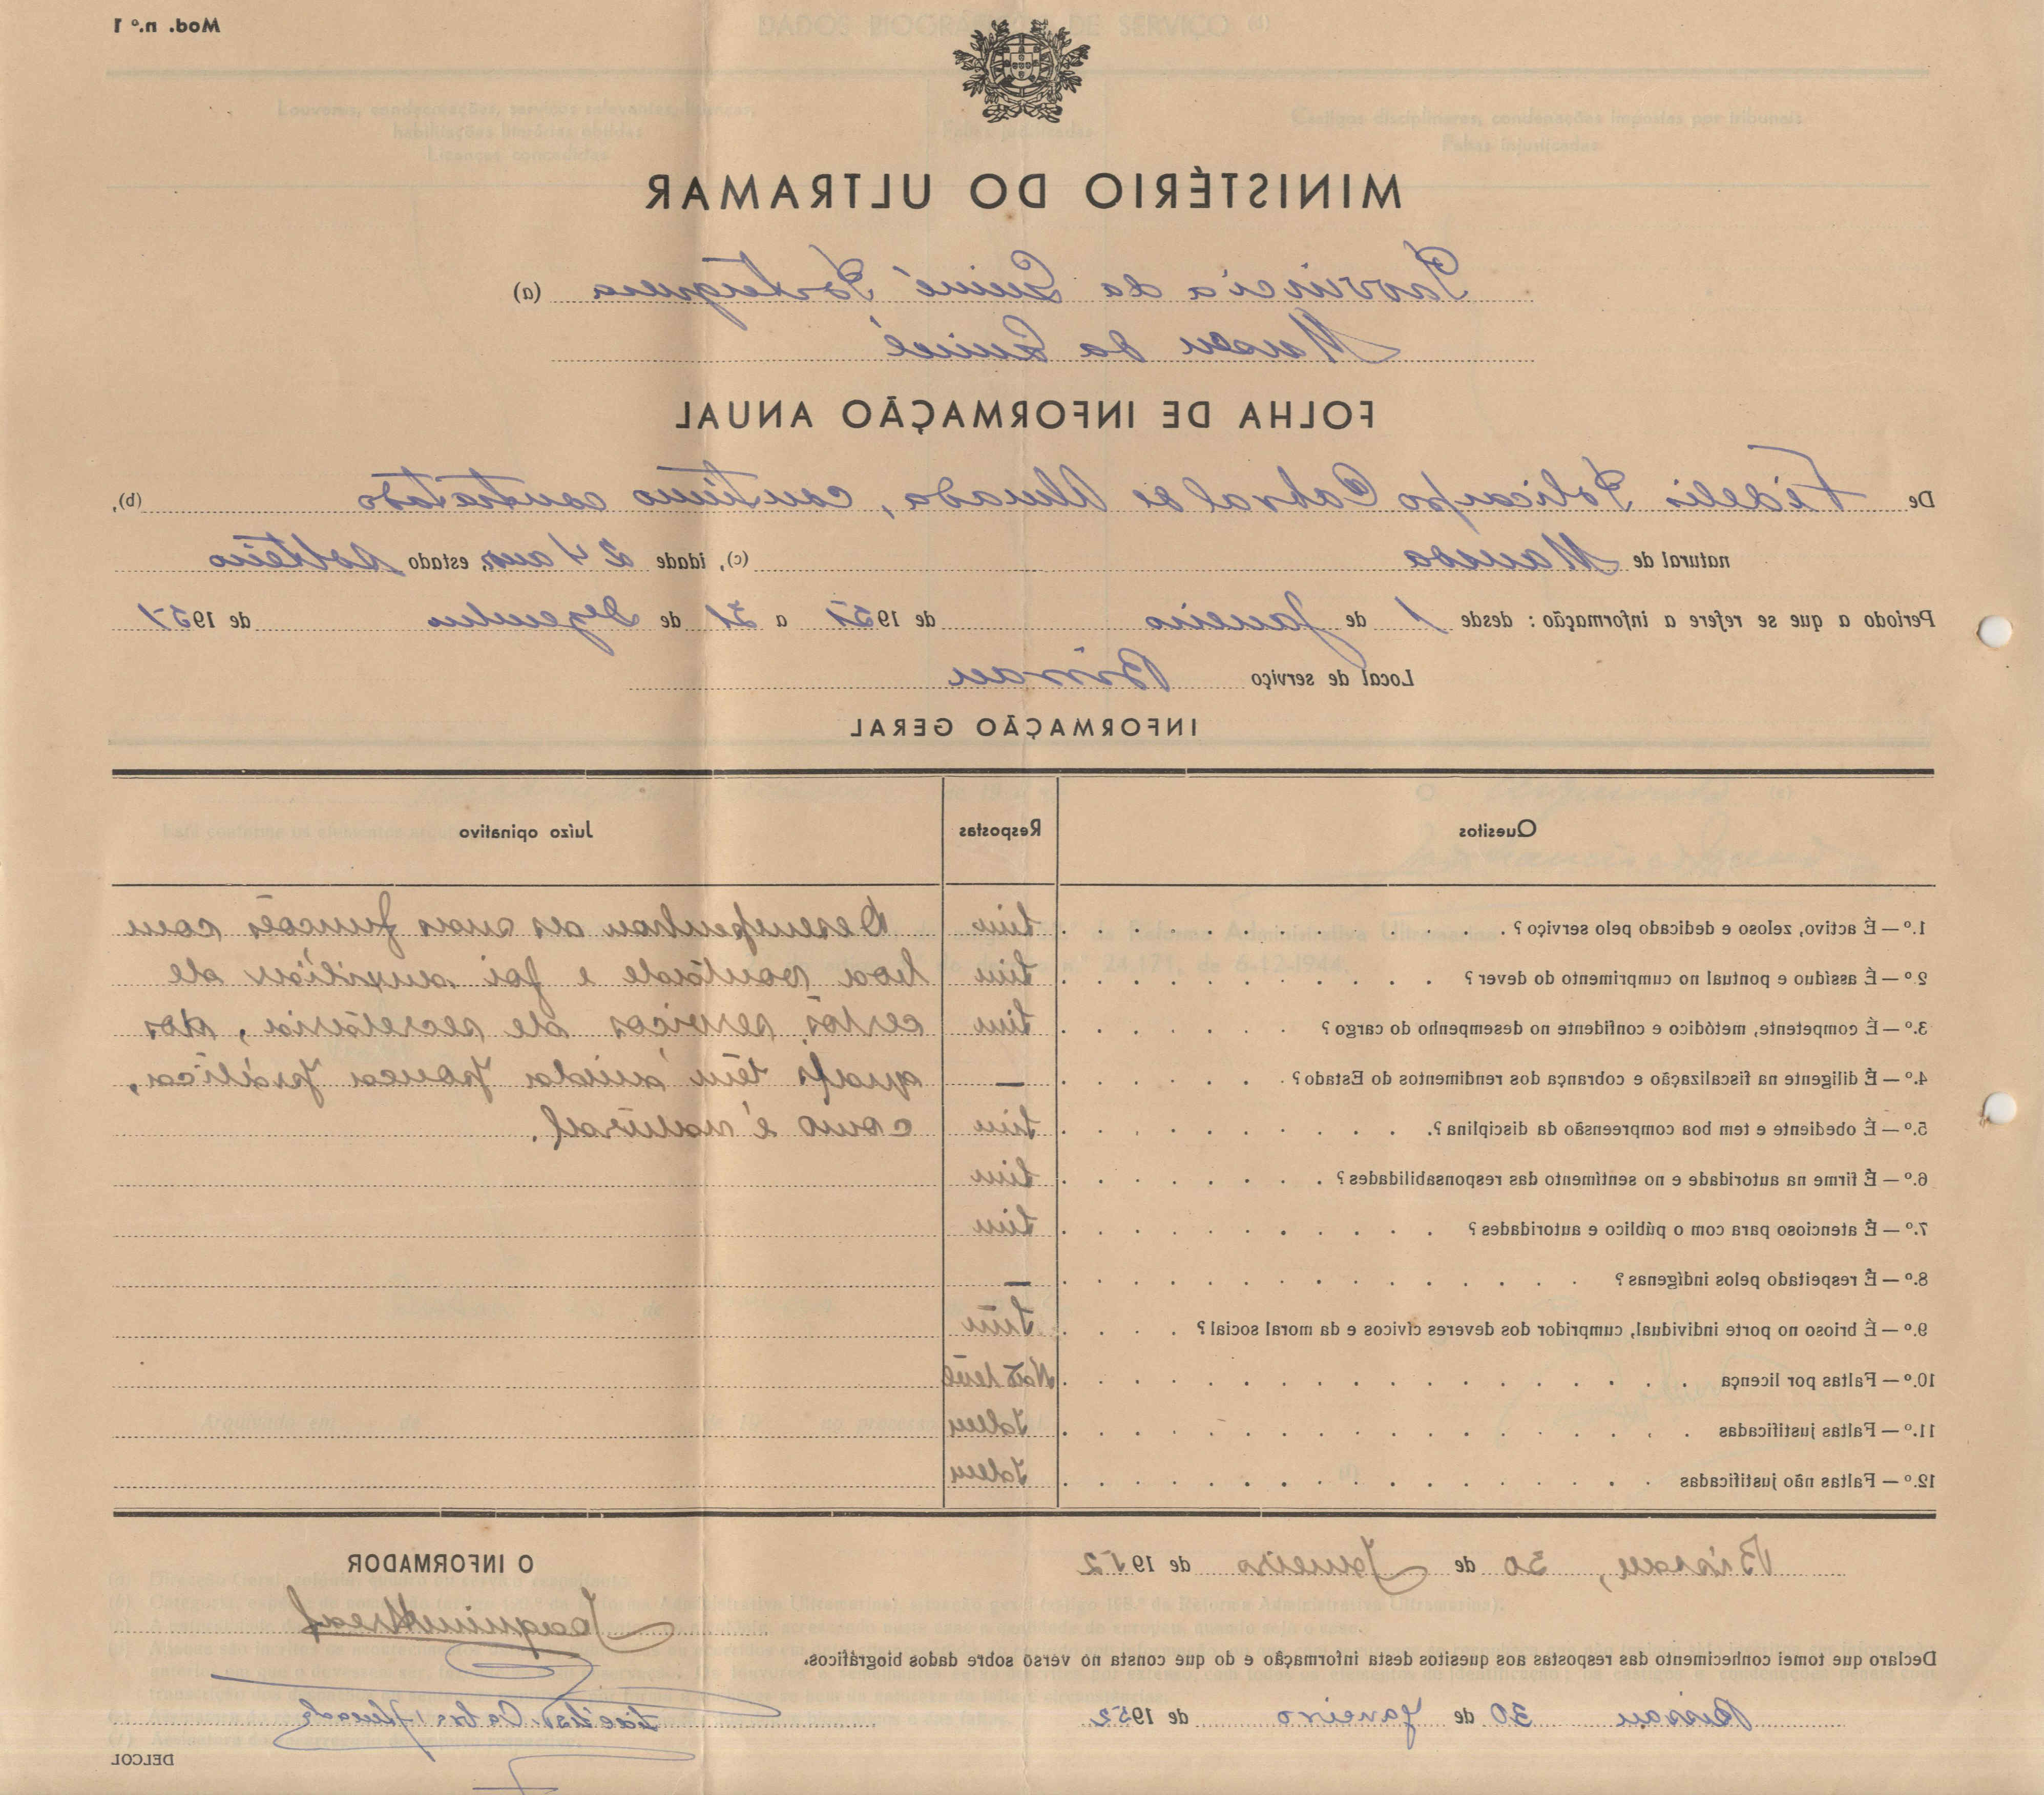 Mod. n.º 1
MINISTÉRIO DO ULTRAMAR
Província da Guiné Portuguesa (a)
Museu da Guiné
FOLHA DE INFORMAÇÃO ANUAL
De Fidelis Policarpo Cabral de Almada, contínuo contratado (b),
natural de Mansoa (c), idade 24 anos, estado solteiro
Periodo a que se refere a informação: desde 1 de Janeiro de 1951 a 31 de Dezembro de 1951
Local de serviço Bissau
INFORMAÇÃO GERAL
Quesitos Respostas Juízo opinativo
1.º — É activo, zeloso e dedicado pelo serviço? Sim Desempenhou as suas funcões com
2.º — É assíduo e pontual no cumprimento do dever? Sim boa vontade e foi auxiliar de
3.º — É competente, metódico e confidente no desempenho do cargo? Sim certos serviços de secretaria, dos
4.º — É diligente na fiscalização e cobrança dos rendimentos do Estado? — quais têm ainda pouca prática,
5.º — É obediente e tem boa compreensão da disciplina? Sim como é natural.
6.º — É firme na autoridade e no sentimento das responsabilidades? Sim
7.º — É atencioso para com o público e autoridades? Sim
8.º — É respeitado pelos indígenas? —
9.º — É brioso no porte individual, cumpridor dos deveres cívicos e da moral social? Sim
10.º — Faltas por licença Não teve
11.º — Faltas justificadas Idem
12.º — Faltas não justificadas Idem
Bissau, 30 de Janeiro de 1952 O INFORMADOR
Joaquim Areal
Declaro que tomei conhecimento das respostas aos quesitos desta informação e do que consta no verso sobre dados biográficos.
Bissau 30 de Janeiro de 1952 Fidelis Cabral Almada
DELCOL